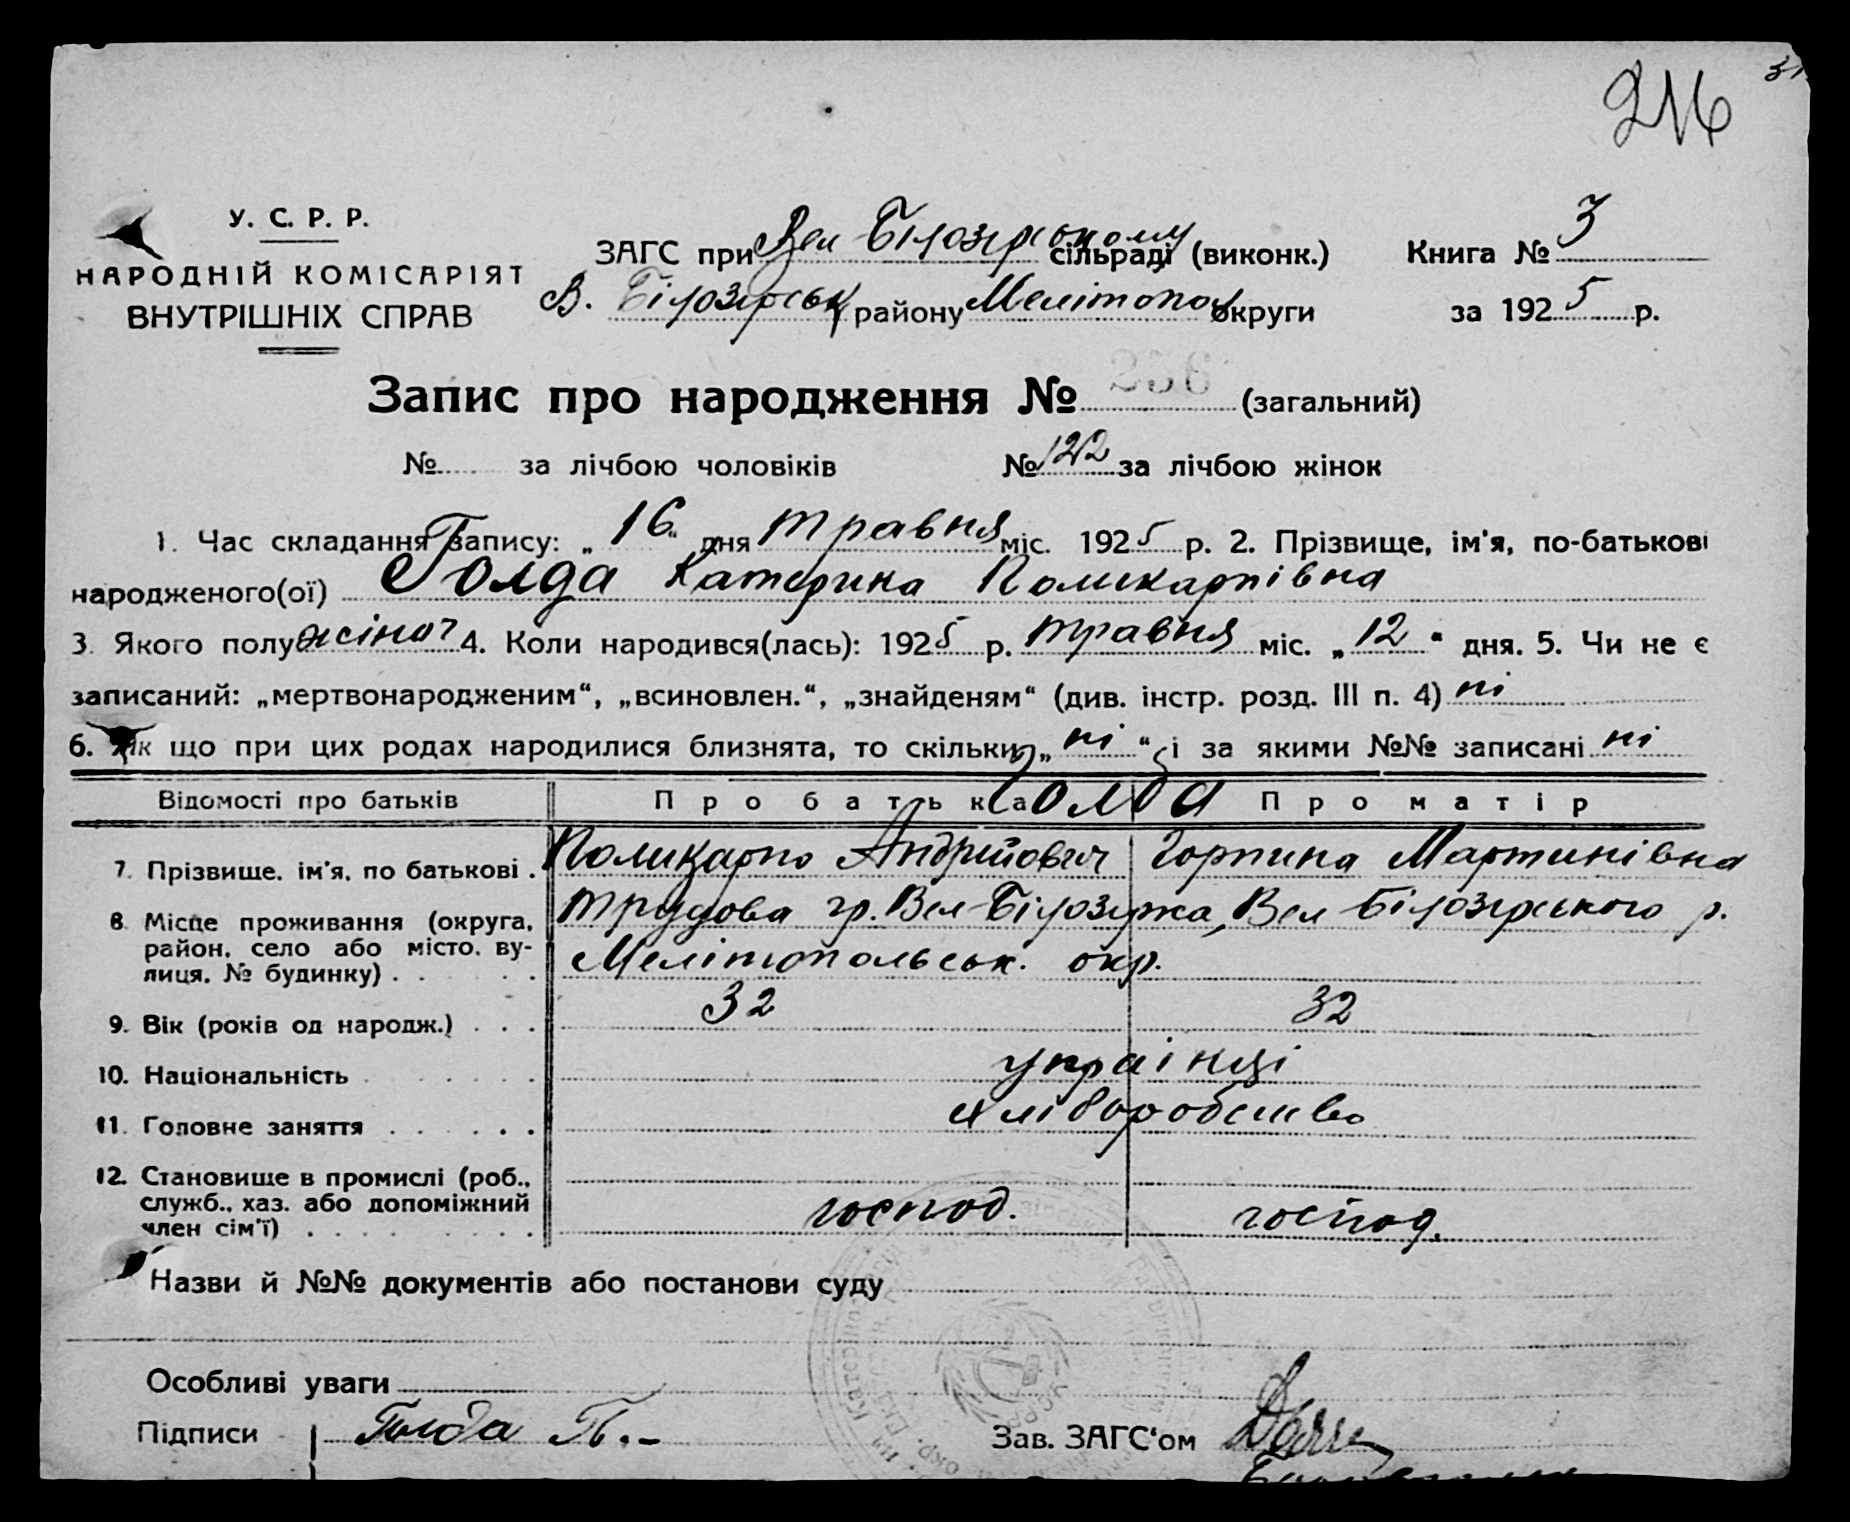 216
У. С. Р. Р.
НАРОДНІЙ КОМІСАРІЯТ
ВНУТРІШНІХ СПРАВ
ЗАГС при Вел Білозірському сільраді (виконк.)
В. Білозірськ району Мелітопол округи
Книга № 3
за 1925 р.
Запис про народження № 256 (загальний)
№ за лічбою чоловіків № 122 за лічбою жінок
1. Час складання запису: „16" дня травня міс. 1925 р. 2. Прізвище, ім'я, по-батькові
народженого(ої) Голда Катерина Поликарпівна
3. Якого полу жіноч 4. Коли народився(лась): 1925 р. травня міс. „12" дня. 5. Чи не є
записаний: „мертвонародженим“, „всиновлен.“, „знайденям“ (див. інстр. розд. III п. 4) ні
6. Як що при цих родах народилися близнята, то скільки „ні“ і за якими №№ записані ні
Відомості про батьків Про батька Про матір
Голда
7. Прізвище, ім'я, по батькові . Поликарпо Андрійович Горпина Мартинівна
8. Місце проживання (округа, район, село або місто, вулиця, № будинку) . . Трудова гр. Вел-Білозірка, Вел-Білозірського р.
Мелітопольськ. окр.
9. Вік (років од народж.) . . . 32 32
10. Національність . українці
11. Головне заняття . . . . . . хліборобство
12. Становище в промислі (роб., служб., хаз. або допоміжний член сім'ї) . . . . . . . . господ. господ.
Назви й №№ документів або постанови суду
Особливі уваги
Підписи Голда П.-
Зав. ЗАГС‘ом